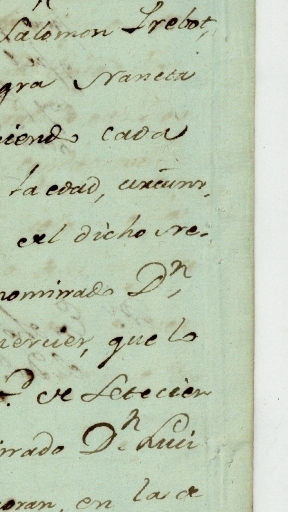 Salomon Prebot,
gra Nancia
iendo cada
la edad, circuns,
el dicho Ne-
nominado Dn,
uervier, que lo
de Setecien
inado Dn Luci
oran, en la e